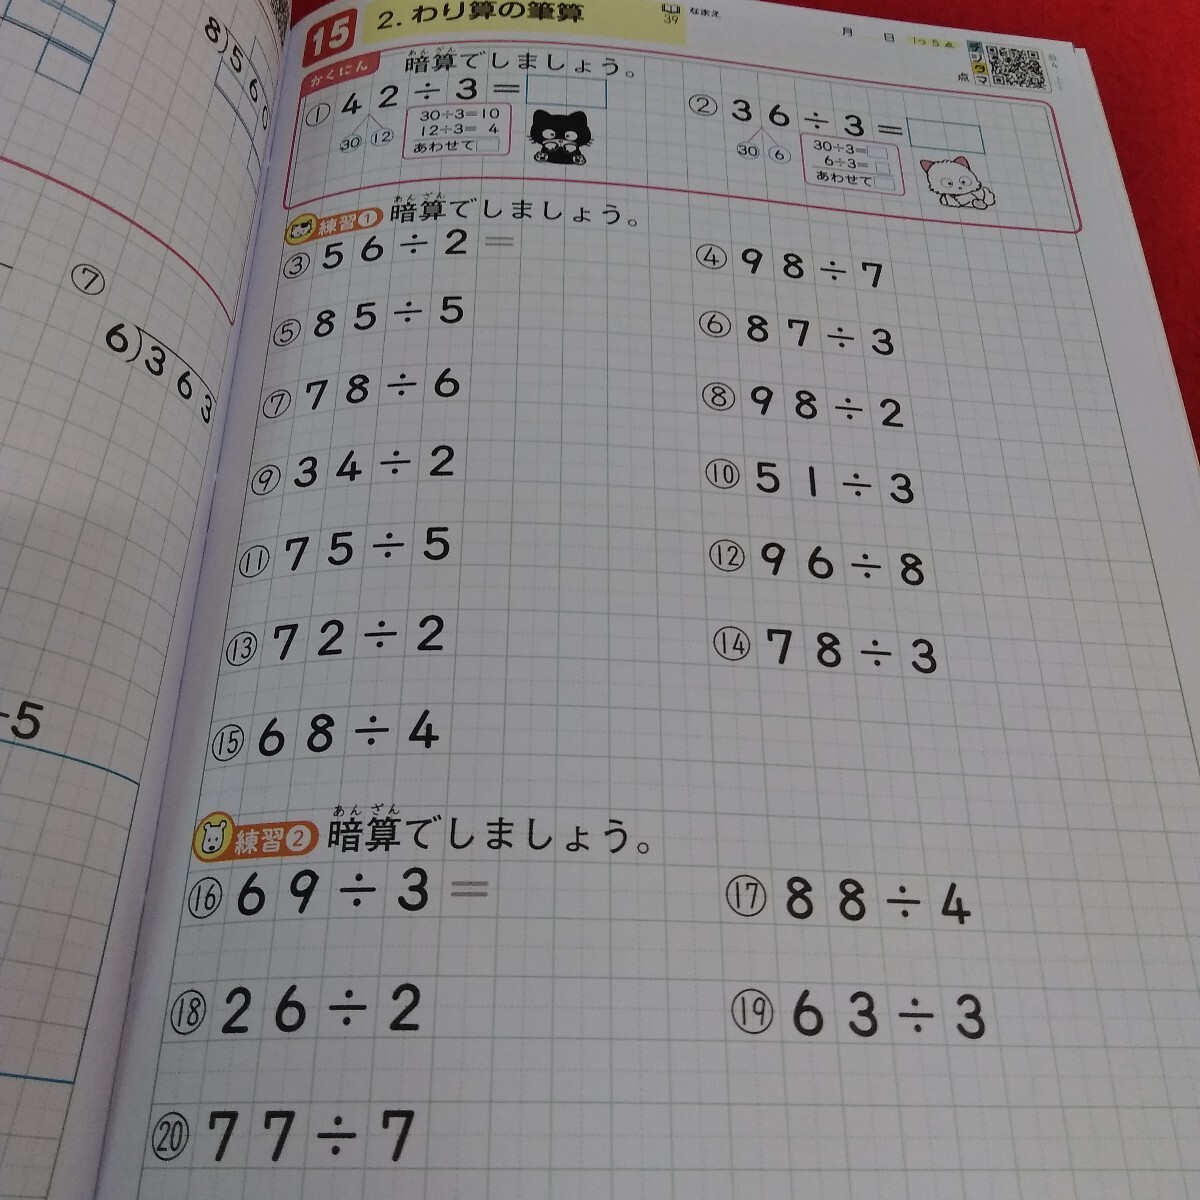 8)560
⑦
6)363
-5
15 2. わり算の筆算
39
なまえ
月 日
1つ 5 点
点
かくにん 暗算でしましょう。
あんざん
① 42÷3=
30 12
30÷3=10
12÷3= 4
あわせて
② 36÷3=
30 6
30÷3=
6÷3=
あわせて
練習① 暗算でしましょう。
あんざん
③ 56÷2=
④ 98÷7
⑤ 85÷5
⑥ 87÷3
⑦ 78÷6
⑧ 98÷2
⑨ 34÷2
⑩ 51÷3
⑪ 75÷5
⑫ 96÷8
⑬ 72÷2
⑭ 78÷3
⑮ 68÷4
練習② 暗算でしましょう。
あんざん
⑯ 69÷3=
⑰ 88÷4
⑱ 26÷2
⑲ 63÷3
⑳ 77÷7